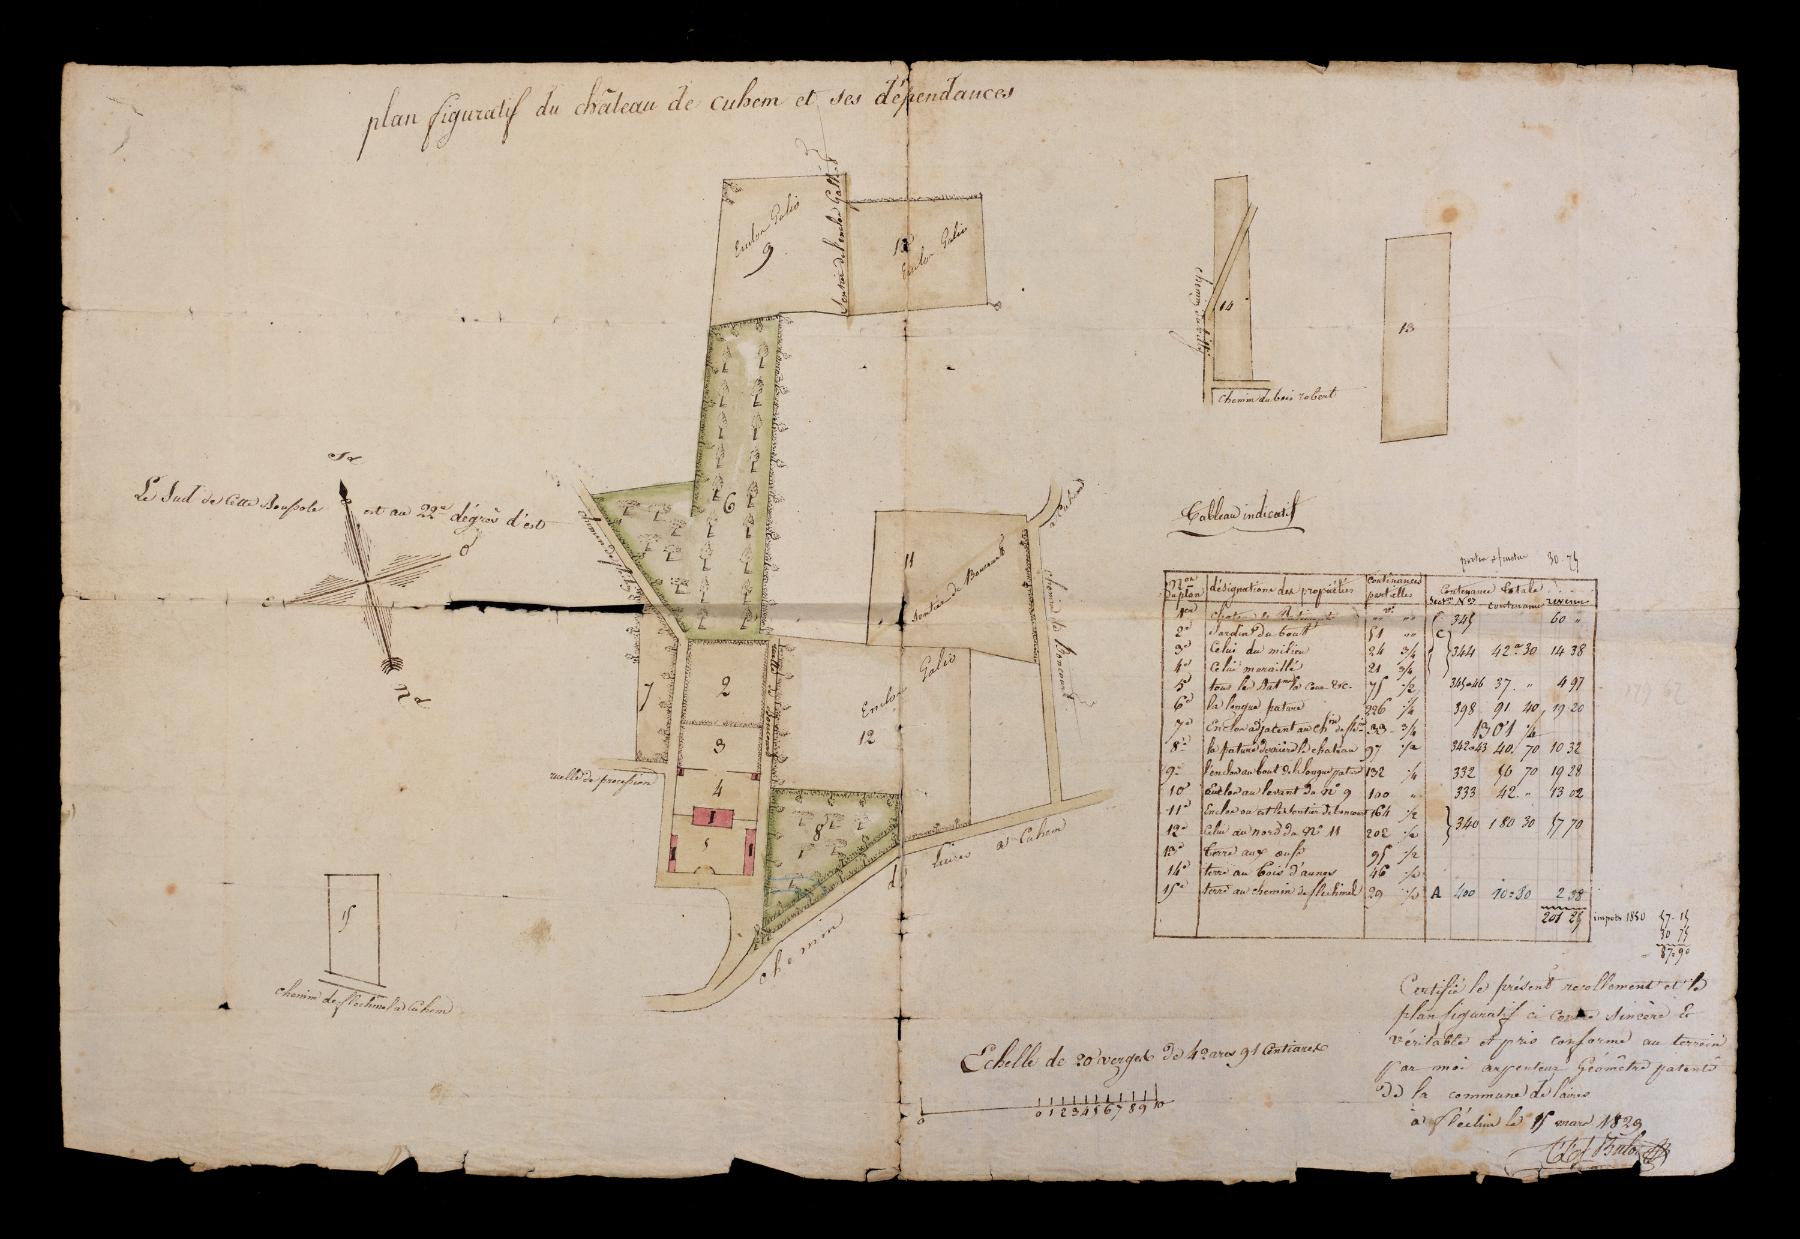 plan figuratif du château de cuhem et ses dépendances
Enclos Galio
9
Sentier de l'enclos Galio
10
Enclos Galio
14
chemin du bois robert
13
Sd
Le Sud de cette Boussole est au 22me dégrés d'est
O
E
Nd
6
chemin de fléchin
11
Sentier de Boncourt
a Cuhem
chemin de Boncourt
7
2
3
4
1
5
8
ruelle de procession
Enclos Galio
12
chemin de laires a Cuhem
15
chemin de flechinel a Cuhem
Tableau indicatif
30 - 75
Nos du plan désignations des propriétés contenances partielles Contenance totale
Secton Nos contenance revenu
1er 345 60 "
2e Jardin du bout 51 "" C
3e Celui du milieu 24 3/4 344 42a 30 14 38
4e Celui muraillé 21 3/4
5e tous les Batmts la cour &c. 75 1/2 345-46 37 . " 4 97
6e la longue pature 226 1/4 398 91 40 19 20
7e Enclos adjacent au chin de flin 33 - 3/4 1301 1/4
8e la pature derrière le chateau 97 1/2 342-43 40. 70 10 32
9e l'enclos au bout de la longue pature 132 1/4 332 56 70 19 28
10e Enclos au levant du No 9 100 " 333 42 . " 13 02
11e Enclos ou est le sentier de boncourt 164 1/2 340 180 30 57 70
12e Celui au nord du No 11 202 1/2
13e terre aux œufs 95 1/2
14e terre au bois d'aunes 46 1/2
15e terre au chemin de flechinel 29 1/2 A 400 10-50 2 38
201 25 impots 1850 57 - 15
30 75
87-90
Certifié le présent recollement et le
plan figuratif ci contre sincère &
véritable et pris conforme au terrein
par moi arpenteur Géomètre patenté
de la commune de laires
a fléchin le 15 mars 1829
Echelle de 20 verges de 42 ares 91 Centiares
0 0 1 2 3 4 5 6 7 8 9 10